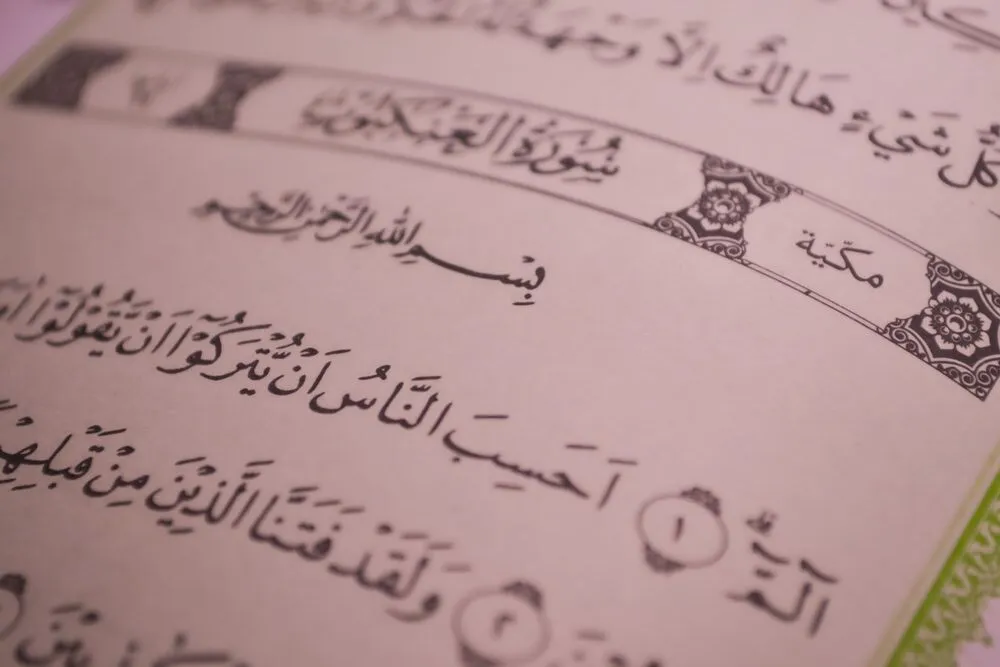 كُلُّ شَيْءٍ هَالِكٌ اِلَّا وَجْهَهٗ
مكّيّة سُوْرَةُ الْعَنْكَبُوْتِ
بِسْمِ اللّٰهِ الرَّحْمٰنِ الرَّحِيْمِ
الۤمّۤ ۗ ١ اَحَسِبَ النَّاسُ اَنْ يُّتْرَكُوْٓا اَنْ يَّقُوْلُوْٓا
٢ وَلَقَدْ فَتَنَّا الَّذِيْنَ مِنْ قَبْلِهِمْ